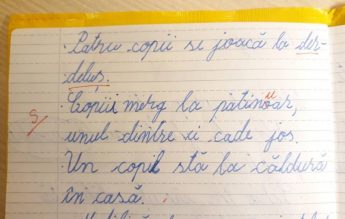 Patru copii se joacă la der-
deluș.
Copiii merg la patinuar,
unul dintre ei cade jos.
Un copil stă la căldură
în casă.